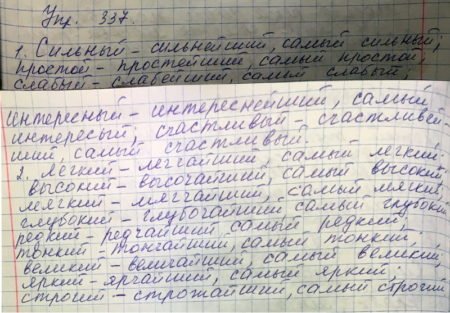 Упр. 337.
1. Сильный – сильнейший, самый сильный;
простой – простейший, самый простой;
слабый – слабейший, самый слабый;
интересный – интереснейший, самый
интересый, счастливый – счастливей-
ший, самый счастливый.
2. Легкий – легчайший, самый легкий.
высокий – высочайший, самый высокий.
мягкий – мягчайший, самый мягкий,
глубокий – глубочайший самый глубокий
редкий – редчайший самый редкий;
тонкий тончайший, самый тонкий;
великий – величайший, самый великий,
яркий – ярчайший, самый яркий;
строгий – строжайший, самый строгий